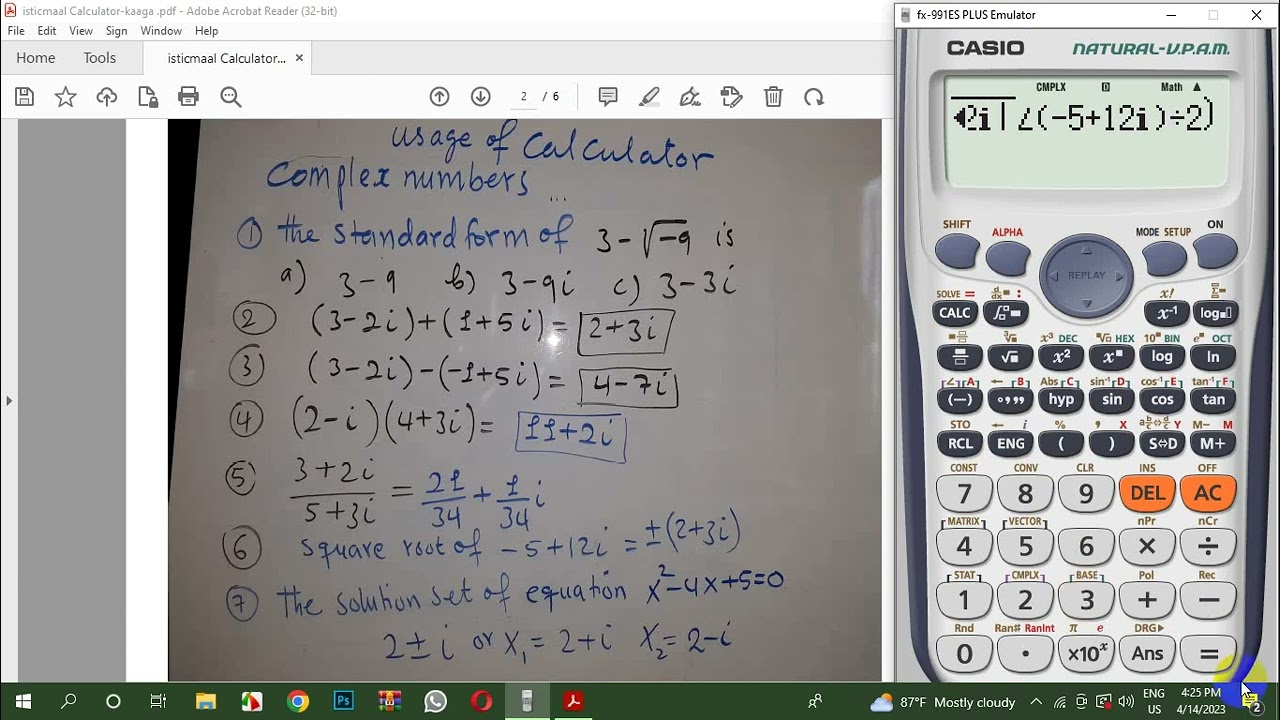 isticmaal Calculator-kaaga .pdf - Adobe Acrobat Reader (32-bit)
File Edit View Sign Window Help
Home Tools isticmaal Calculator... ×
2 / 6
usage of Calculator
Complex numbers
...
① the standard form of 3-√-9 is
a) 3-9 b) 3-9i c) 3-3i
② (3-2i)+(1+5i)= 2+3i
③ (3-2i)-(-1+5i)= 4-7i
④ (2-i)(4+3i)= 11+2i
⑤ (3+2i)/(5+3i) = 21/34 + 1/34 i
⑥ square root of -5+12i = ±(2+3i)
⑦ the solution set of equation x²-4x+5=0
2±i or x₁=2+i x₂=2-i
fx-991ES PLUS Emulator
CASIO NATURAL-V.P.A.M.
CMPLX D Math ▲
◀2i| ∠(-5+12i)÷2)
SHIFT ALPHA MODE SETUP ON
REPLAY
SOLVE = d/dx : x! Σ
CALC ∫ x⁻¹ log
³√ x³ DEC ˣ√ HEX 10ˣ BIN eˣ OCT
√ x² xˣ log ln
∠ A ← B Abs C sin⁻¹ D cos⁻¹ E tan⁻¹ F
(−) °,,, hyp sin cos tan
STO ← i % , X a b/c⇔d/c Y M− M
RCL ENG ( ) S⇔D M+
CONST CONV CLR INS OFF
7 8 9 DEL AC
MATRIX VECTOR nPr nCr
4 5 6 × ÷
STAT CMPLX BASE Pol Rec
1 2 3 + −
Rnd Ran# RanInt π e DRG▶
0 • ×10ˣ Ans =
87°F Mostly cloudy ENG US 4:25 PM 4/14/2023 2